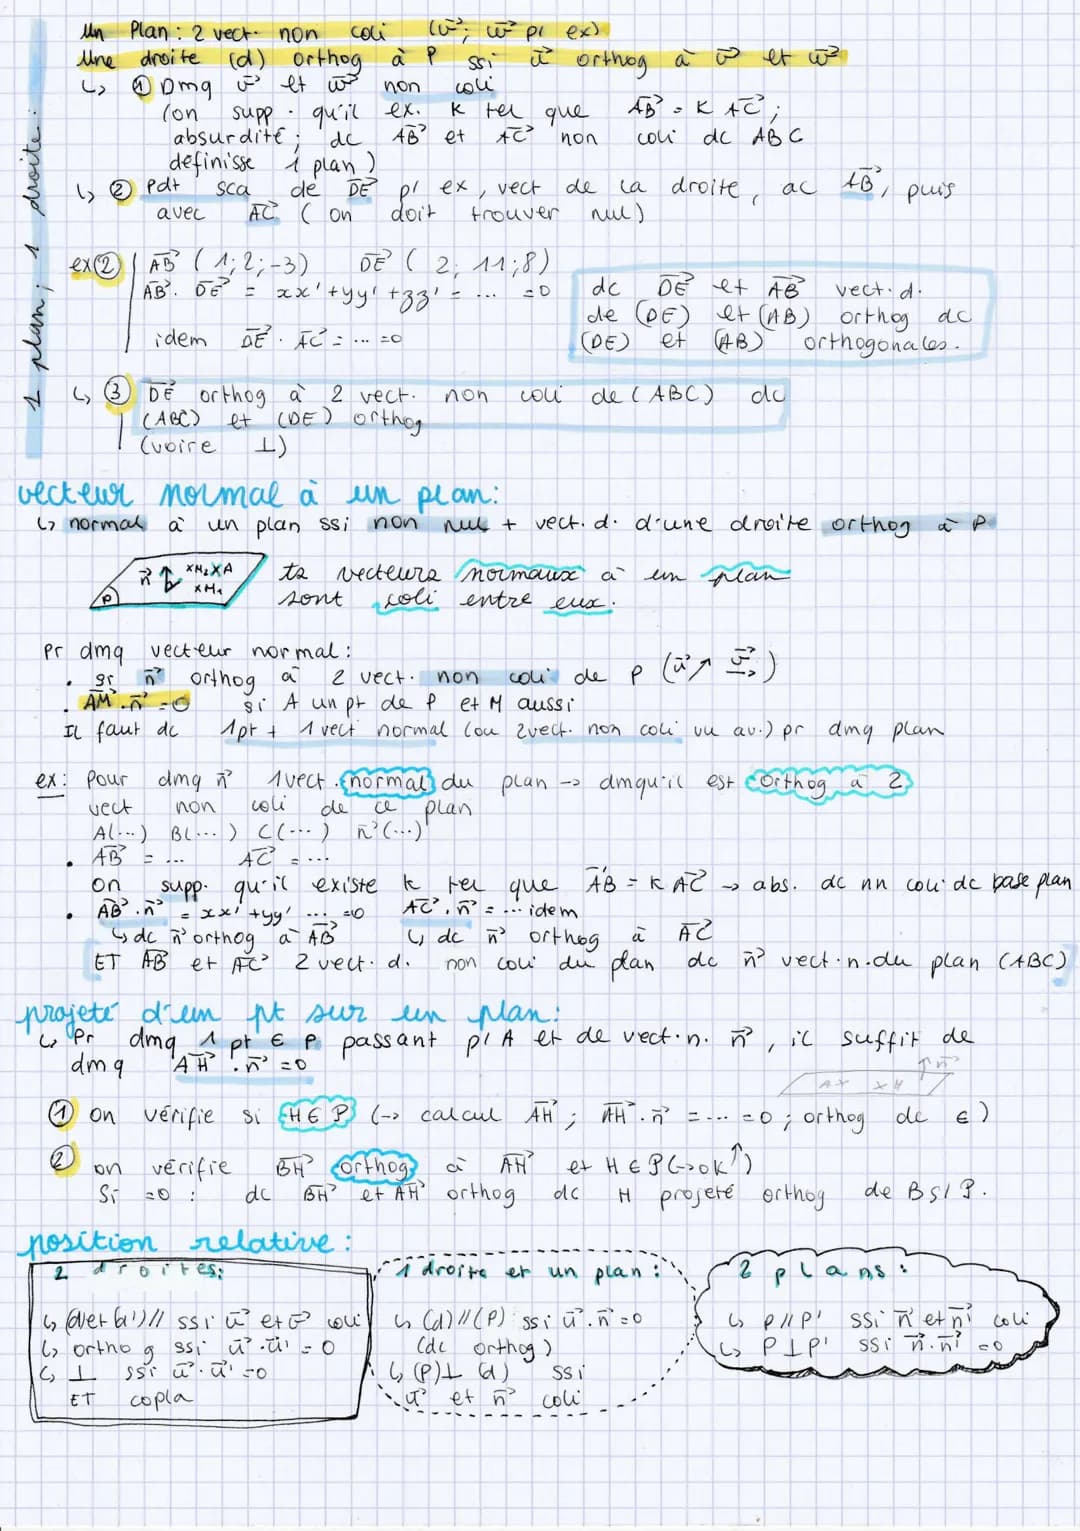 1 plan ; 1 droite :
Un Plan : 2 vect. non coli (v⃗ ; w⃗ p/ ex)
Une droite (d) orthog à P ssi u⃗ orthog à v⃗ et w⃗
↳ ① Dmq v⃗ et w⃗ non coli
(on supp. qu'il ex. K tel que AB⃗ = K AC⃗ ;
absurdité ; dc AB⃗ et AC⃗ non coli dc ABC
définisse 1 plan)
↳ ② Pdt sca de DE⃗ p/ ex, vect de la droite, ac AB⃗, puis
avec AC⃗ (on doit trouver nul)
ex ② AB⃗ (1;2;-3) DE⃗ (2; 11;8)
AB⃗ . DE⃗ = xx' + yy' + zz' = ... = 0
idem DE⃗ . AC⃗ = ... = 0
dc DE⃗ et AB⃗ vect. d.
de (DE) et (AB) orthog dc
(DE) et (AB) orthogonales.
↳ ③ DE⃗ orthog à 2 vect. non coli de (ABC) dc
(ABC) et (DE) orthog
(voire ⊥)
vecteur normal à un plan :
↳ normal à un plan ssi non nul + vect. d. d'une droite orthog à P
n⃗ xM₂ xA
xM₁
P
ts vecteurs normaux à un plan
sont coli entre eux.
Pr dmq vecteur normal :
• si n⃗ orthog à 2 vect. non coli de P (u⃗↗ v⃗→)
• AM⃗ . n⃗ = 0 si A un pt de P et M aussi
Il faut dc 1pt + 1 vect normal (ou 2vect. non coli vu av.) pr dmq plan
ex : Pour dmq n⃗ 1vect. normal du plan → dmqu'il est orthog à 2
vect non coli de ce plan
A(...) B(...) C(...) n⃗(...)
• AB⃗ = ... AC⃗ = ...
on supp. qu'il existe k tel que AB⃗ = K AC⃗ → abs. dc nn coli dc base plan
• AB⃗ . n⃗ = xx' + yy' ... = 0 AC⃗ . n⃗ = ... idem
↳ dc n⃗ orthog à AB⃗ ↳ dc n⃗ orthog à AC⃗
[ET AB⃗ et AC⃗ 2 vect. d. non coli du plan dc n⃗ vect.n.du plan (ABC)]
projeté d'un pt sur un plan :
↳ Pr dmq 1 pt ∈ P passant p/ A et de vect.n. n⃗, il suffit de
dmq AH⃗ . n⃗ = 0
n⃗
Ax xH
① on vérifie si H∈P (→ calcul AH⃗ ; AH⃗ . n⃗ = ... = 0 ; orthog dc ∈)
② on vérifie BH⃗ orthog à AH⃗ et H∈P (→ok↑)
Si = 0 : dc BH⃗ et AH⃗ orthog dc H projeté orthog de B s/ P.
position relative :
2 droites :
↳ (d)et(d')// ssi u⃗ et v⃗ coli
↳ orthog ssi u⃗ . u⃗' = 0
↳ ⊥ ssi u⃗ . u⃗' = 0
ET copla
1 droite et un plan :
↳ (d)//(P) ssi u⃗ . n⃗ = 0
(dc orthog)
↳ (P)⊥(d) ssi
u⃗ et n⃗ coli
2 plans :
↳ P//P' ssi n⃗ et n⃗' coli
↳ P⊥P' ssi n⃗ . n⃗' = 0